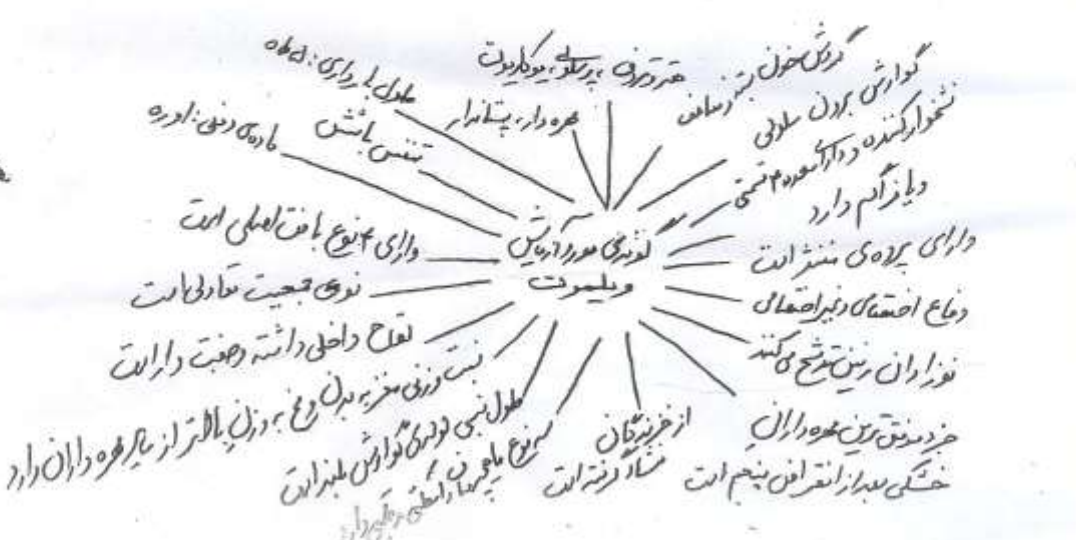 گوسفندی مورد آزمایش
ویلموت
هتروتروف، پرسلولی، یوکاریوت
مهره دار، پستاندار
گردش خون بسته و مضاعف
گوارش برون سلولی
نشخوار کننده و دارای معده ۴ قسمتی
دیافراگم دارد
دارای پرده‌ی مننژ است
دفاع اختصاصی و غیراختصاصی
نوزادان رنین ترشح می‌کنند
جزء موفق ترین مهره داران
خشکی بعد از انقراض پنجم است
از خزندگان
منشأ گرفته است
سه نوع ماهیچه
طول نسبی لوله‌ی گوارش بلند است
نسبت وزنی مغز به بدن و مخ به وزن بالاتر از سایر مهره داران دارد
لقاح داخلی داشته و جفت دار است
نوعی جمعیت تعادلی است
دارای ۴ نوع بافت اصلی است
ماده‌ی دفعی: اوره
تنفس با شش
طول بارداری: ۵ ماه